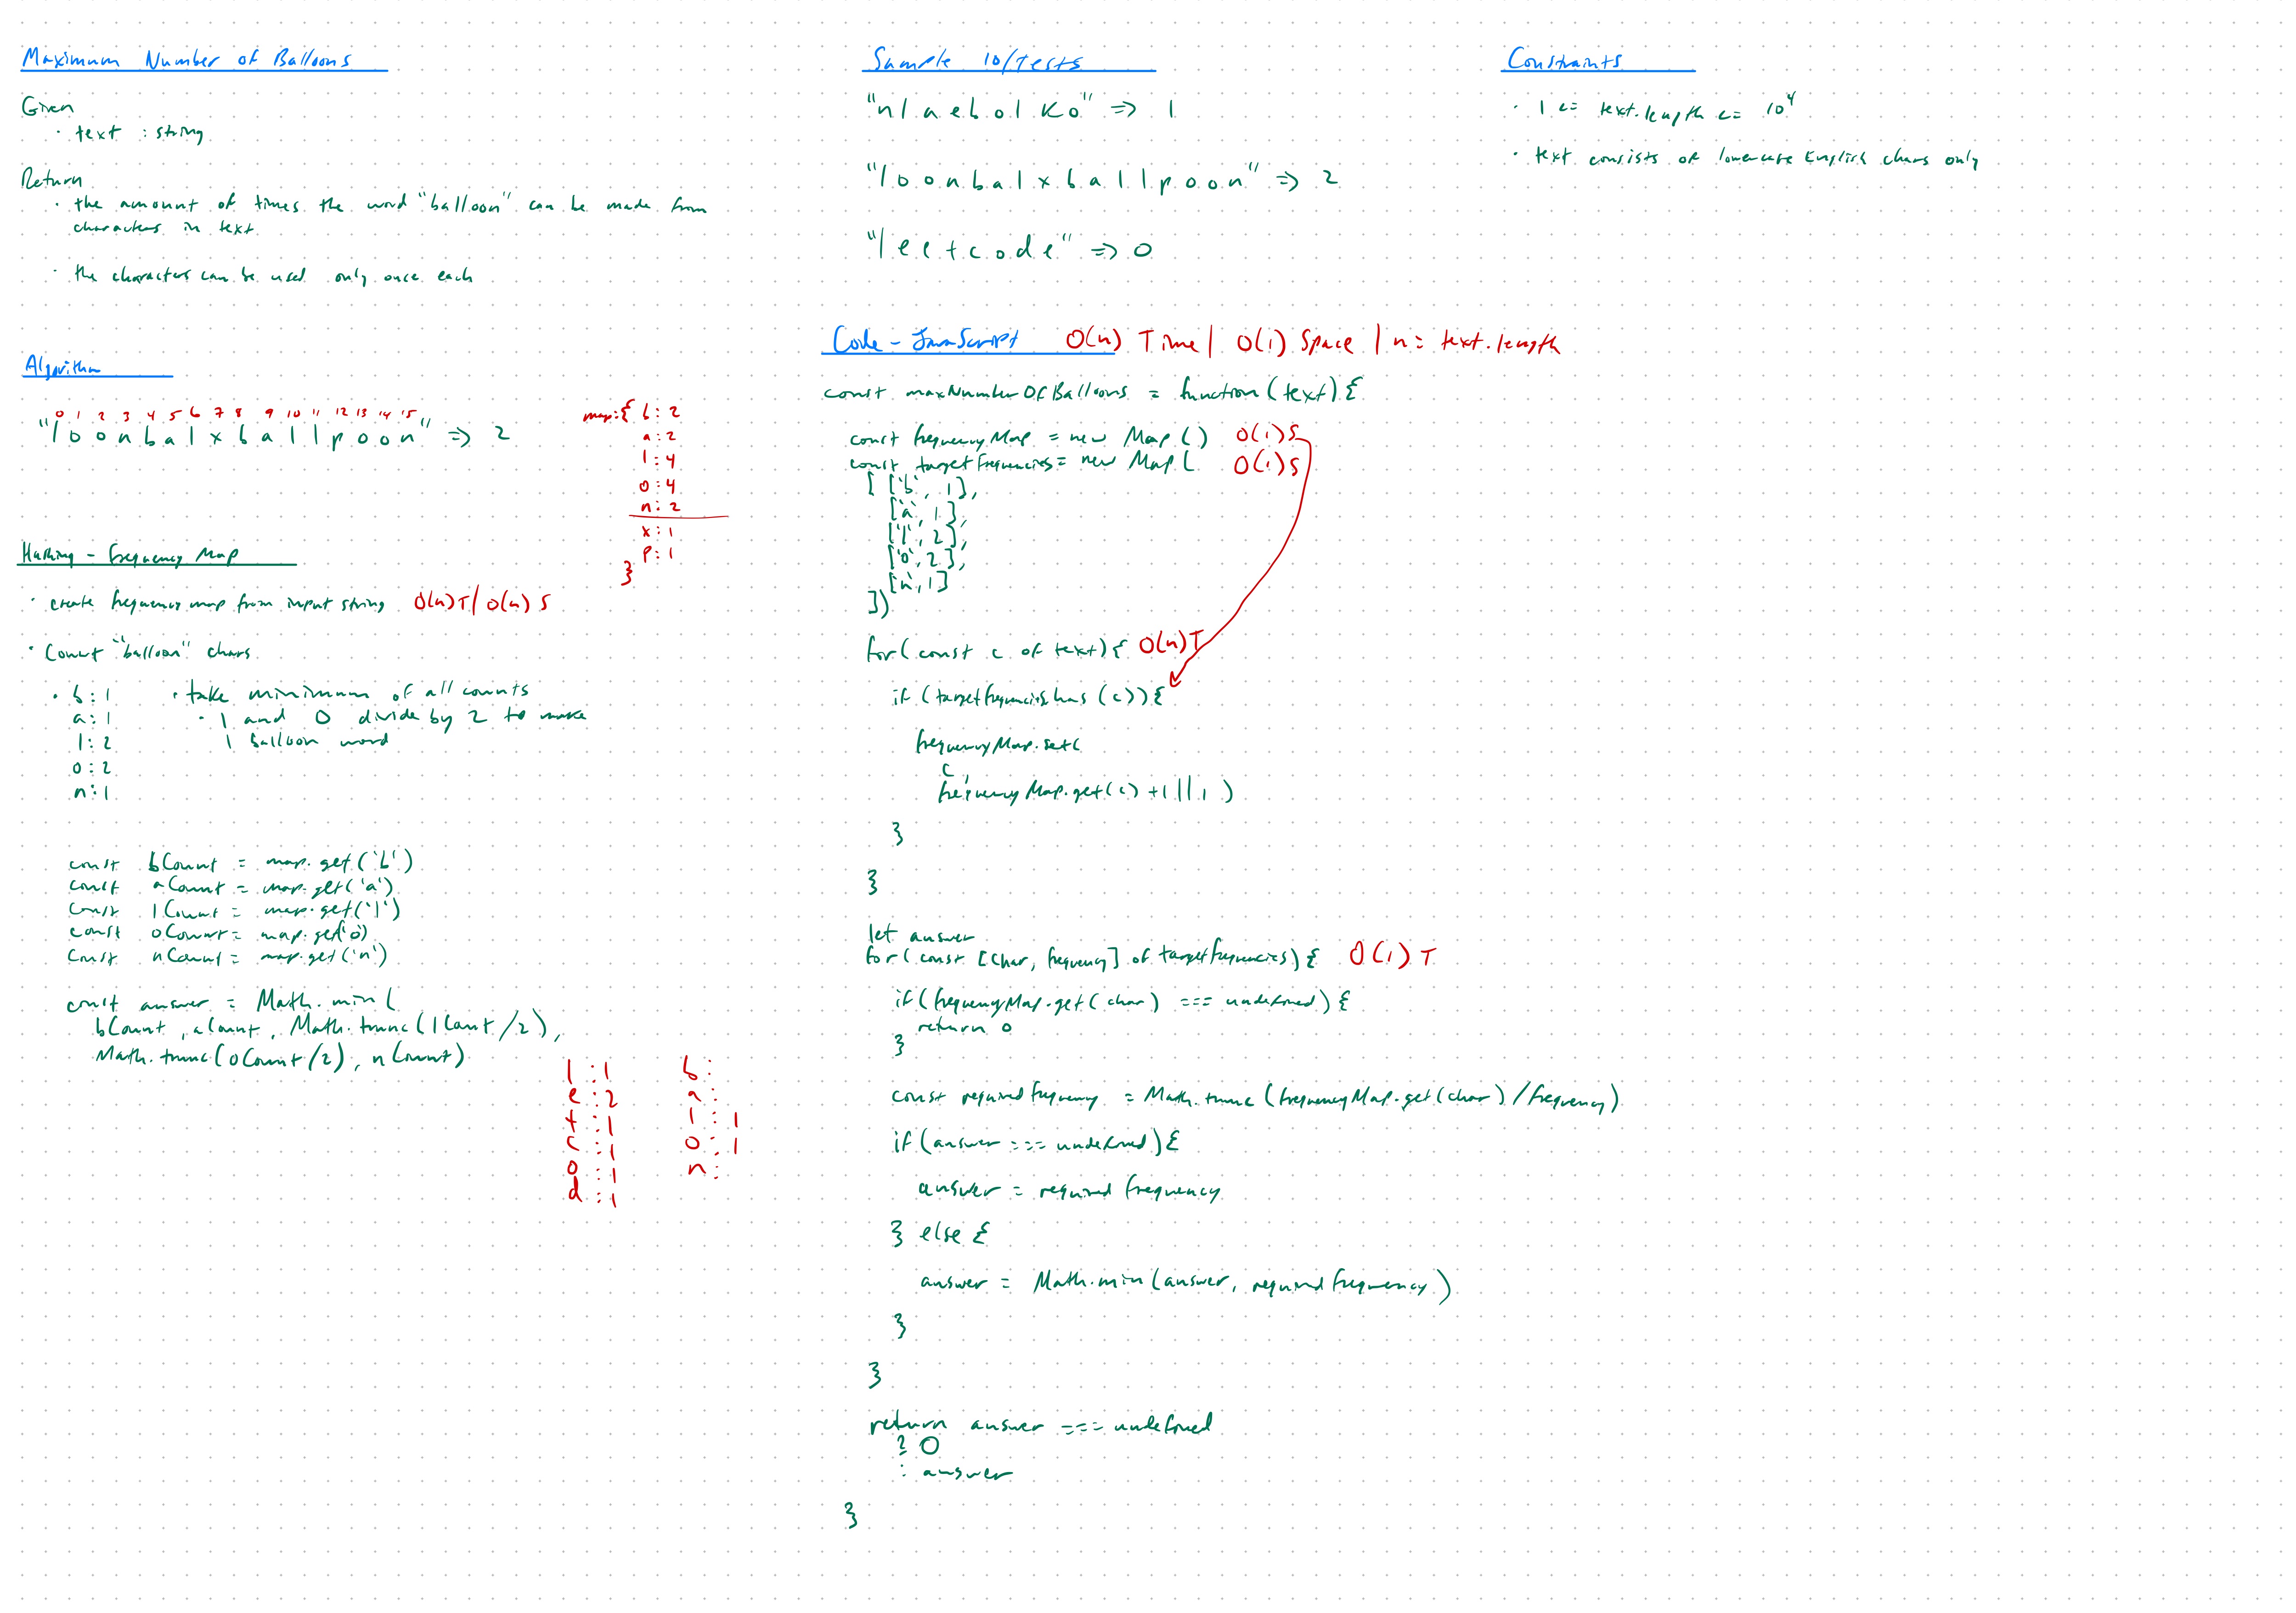 Maximum Number of Balloons
Given
· text : string
Return
· the amount of times the word "balloon" can be made from
characters in text
· the characters can be used only once each
Algorithm
0 1 2 3 4 5 6 7 8 9 10 11 12 13 14 15
"loonbalxballpoon" => 2
map:{ b: 2
a: 2
l: 4
o: 4
n: 2
x: 1
p: 1
}
Hashing - Frequency Map
· create frequency map from input string O(n) T/ O(n) S
· Count "balloon" chars
· b: 1
a: 1
l: 2
o: 2
n: 1
· take minimum of all counts
· l and o divide by 2 to make
1 balloon word
const bCount = map.get('b')
const aCount = map.get('a')
const lCount = map.get('l')
const oCount = map.get('o)
const nCount = map.get('n')
const answer = Math.min(
bCount, aCount, Math.trunc(lCount/2),
Math.trunc(oCount/2), nCount)
l : 1
e : 2
t : 1
c : 1
o : 1
d : 1
b :
a :
l : 1
o : 1
n :
Sample IO/Tests
"nlaebolko" => 1
"loonbalxballpoon" => 2
"leetcode" => 0
Code - JavaScript O(n) Time | O(1) Space | n = text.length
const maxNumberOfBalloons = function(text){
const frequencyMap = new Map() O(1) S
const targetFrequencies = new Map( O(1) S
[ ['b', 1],
['a', 1],
['l', 2],
['o', 2],
['n', 1]
])
for(const c of text){ O(n) T
if (targetFrequencies.has(c)){
frequencyMap.set(
c,
frequencyMap.get(c) +1 || 1 )
}
}
let answer
for(const [char, frequency] of targetFrequencies){ O(1) T
if(frequencyMap.get(char) === undefined){
return 0
}
const requiredFrequency = Math.trunc(frequencyMap.get(char)/frequency)
if(answer === undefined){
answer = requiredFrequency
} else {
answer = Math.min(answer, requiredFrequency)
}
}
return answer === undefined
? 0
: answer
}
Constraints
· 1 <= text.length <= 10⁴
· text consists of lowercase English chars only